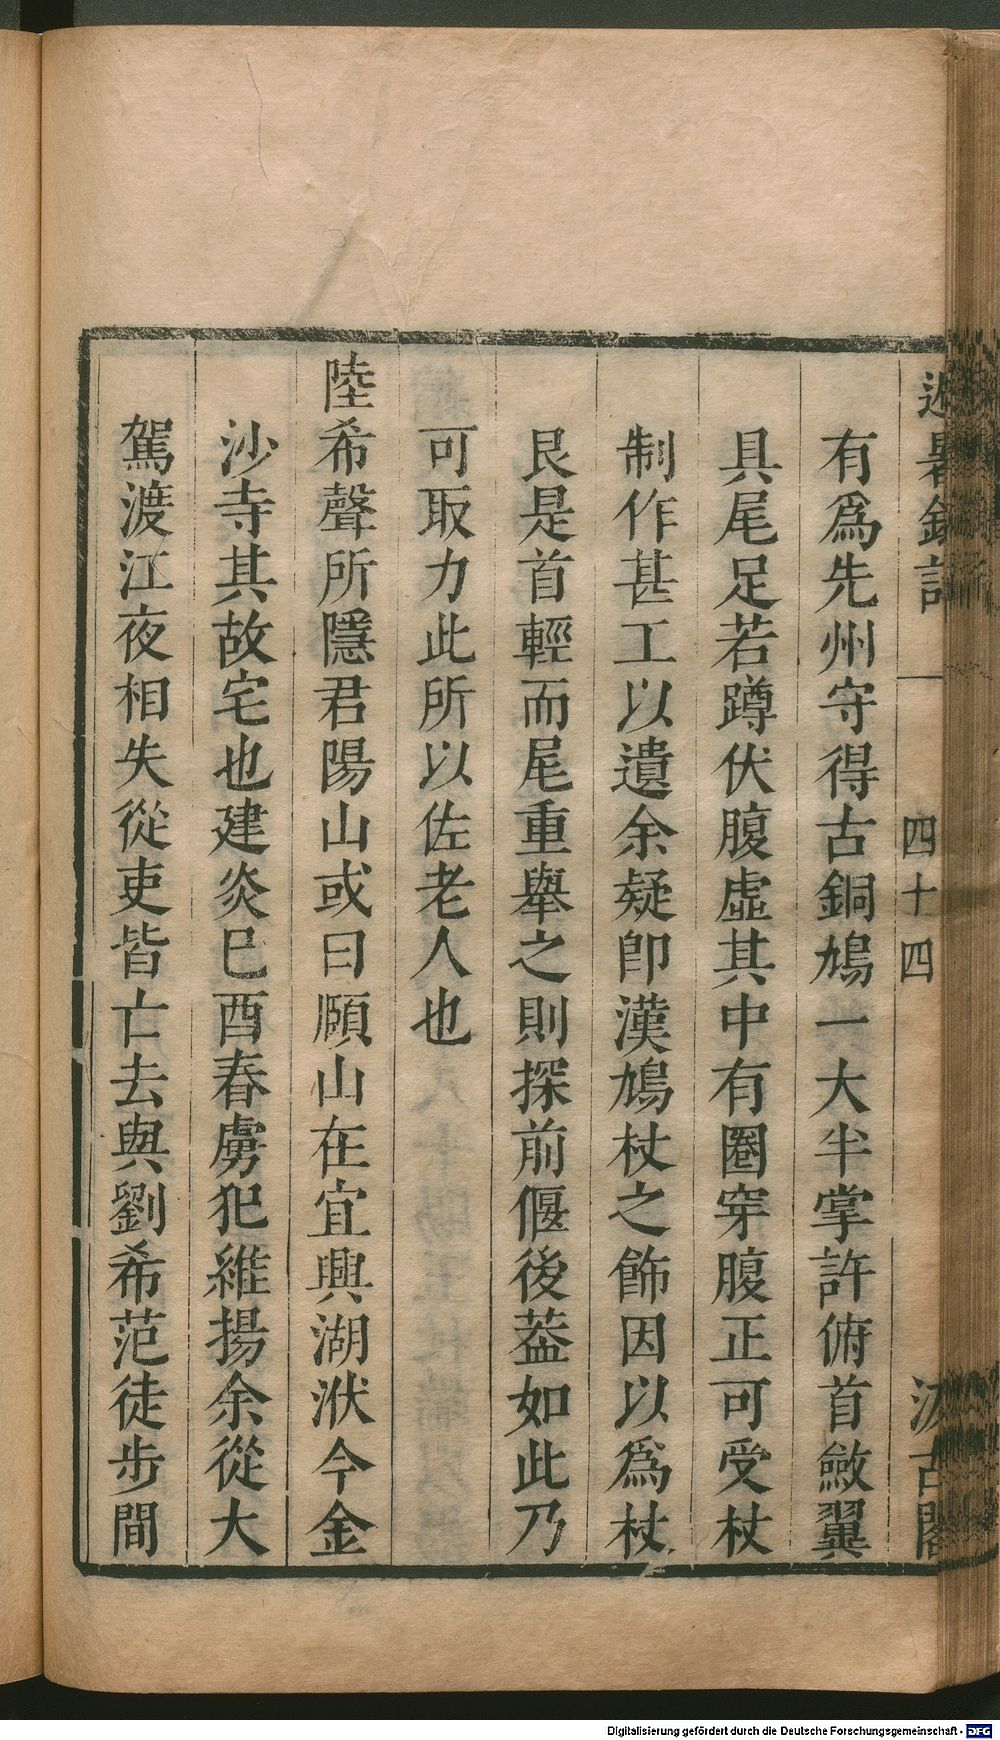 避暑錄話 一 四十四 汲古閣
有爲先州守得古銅鳩一大半掌許俯首斂翼
具尾足若蹲伏腹虛其中有圈穿腹正可受杖
制作甚工以遺余疑卽漢鳩杖之飾因以爲杖
良是首輕而尾重舉之則探前偃後葢如此乃
可取力此所以佐老人也
陸希聲所隱君陽山或曰頥山在宜興湖㳇今金
沙寺其故宅也建炎巳酉春虜犯維揚余從大
駕渡江夜相失從吏皆亡去與劉希范徒步間
Digitalisierung gefördert durch die Deutsche Forschungsgemeinschaft - DFG